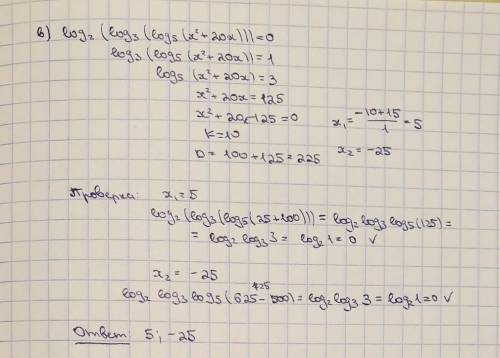 в) log₂ (log₃ (log₅ (x² + 20x))) = 0
log₃ (log₅ (x² + 20x)) = 1
log₅ (x² + 20x) = 3
x² + 20x = 125
x² + 20x - 125 = 0
k = 10
D = 100 + 125 = 225
x₁ = (-10 + 15)/1 = 5
x₂ = -25
Проверка: x₁ = 5
log₂ (log₃ (log₅ (25 + 100))) = log₂ log₃ log₅ (125) =
= log₂ log₃ 3 = log₂ 1 = 0 ✓
x₂ = -25
125
log₂ log₃ log₅ (625 - 500) = log₂ log₃ 3 = log₂ 1 = 0 ✓
Ответ: 5; -25